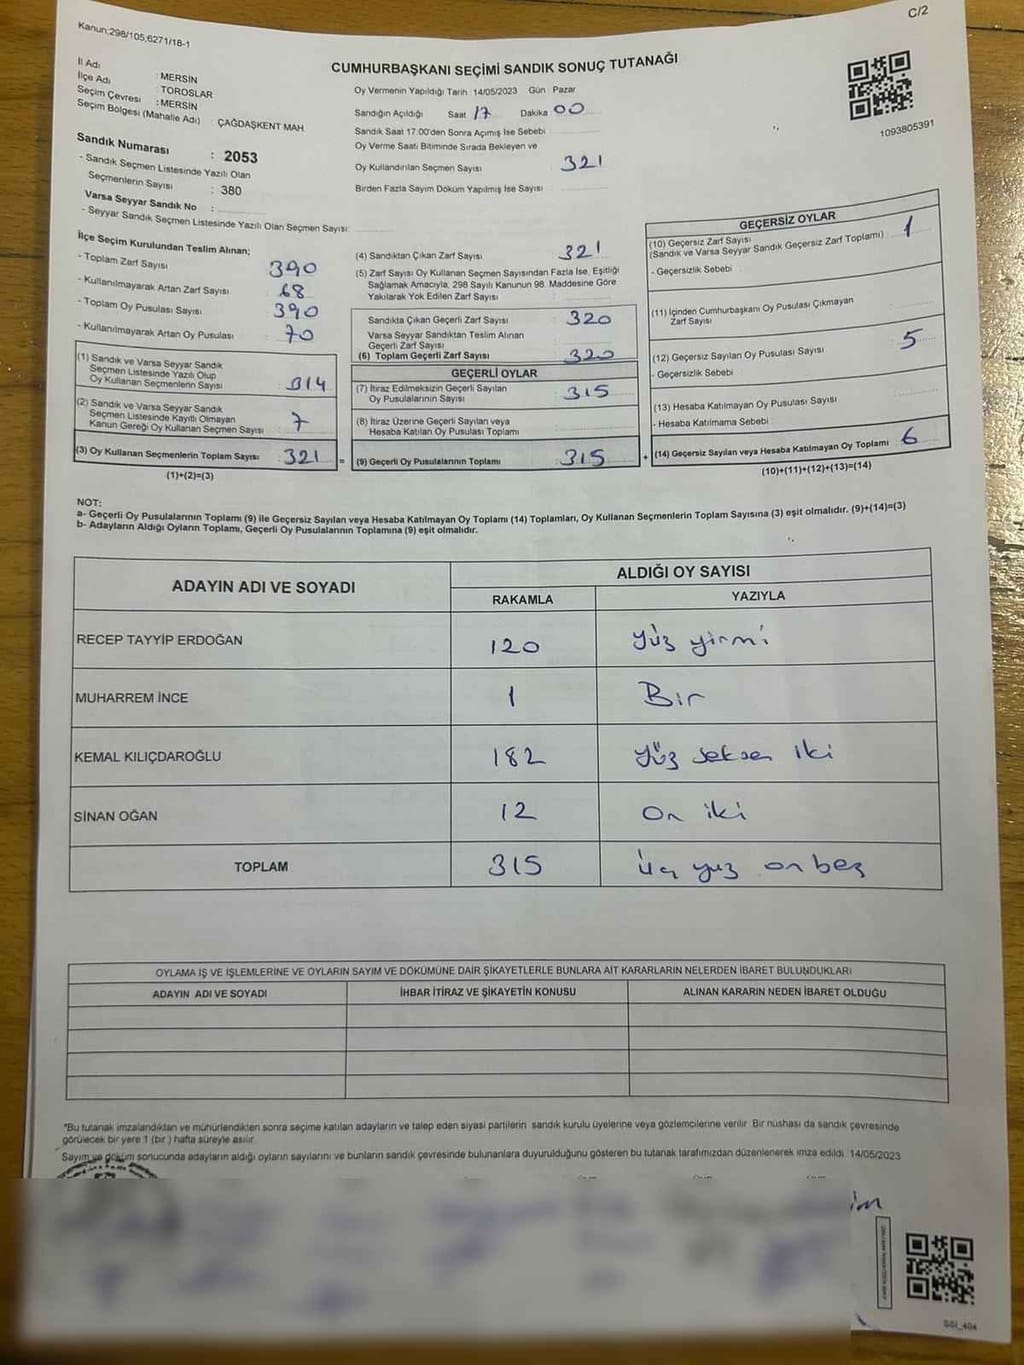 Kanun;298/105;6271/18-1
C/2
CUMHURBAŞKANI SEÇİMİ SANDIK SONUÇ TUTANAĞI
İl Adı : MERSİN
İlçe Adı : TOROSLAR
Seçim Çevresi : MERSİN
Seçim Bölgesi (Mahalle Adı) : ÇAĞDAŞKENT MAH.
Sandık Numarası : 2053
- Sandık Seçmen Listesinde Yazılı Olan
Seçmenlerin Sayısı : 380
Varsa Seyyar Sandık No :
- Seyyar Sandık Seçmen Listesinde Yazılı Olan Seçmen Sayısı:
Oy Vermenin Yapıldığı Tarih : 14/05/2023 Gün Pazar
Sandığın Açıldığı Saat 17 Dakika 00
Sandık Saat 17:00'den Sonra Açılmış İse Sebebi
Oy Verme Saati Bitiminde Sırada Bekleyen ve
Oy Kullandırılan Seçmen Sayısı 321
Birden Fazla Sayım Döküm Yapılmış İse Sayısı
1093805391
İlçe Seçim Kurulundan Teslim Alınan;
- Toplam Zarf Sayısı 390
- Kullanılmayarak Artan Zarf Sayısı 68
- Toplam Oy Pusulası Sayısı 390
- Kullanılmayarak Artan Oy Pusulası 70
(1) Sandık ve Varsa Seyyar Sandık
Seçmen Listesinde Yazılı Olup
Oy Kullanan Seçmenlerin Sayısı 314
(2) Sandık ve Varsa Seyyar Sandık
Seçmen Listesinde Kayıtlı Olmayan
Kanun Gereği Oy Kullanan Seçmen Sayısı 7
(3) Oy Kullanan Seçmenlerin Toplam Sayısı 321 =
(1)+(2)=(3)
(4) Sandıktan Çıkan Zarf Sayısı 321
(5) Zarf Sayısı Oy Kullanan Seçmen Sayısından Fazla İse, Eşitliği
Sağlamak Amacıyla, 298 Sayılı Kanunun 98. Maddesine Göre
Yakılarak Yok Edilen Zarf Sayısı
Sandıkta Çıkan Geçerli Zarf Sayısı : 320
Varsa Seyyar Sandıktan Teslim Alınan
Geçerli Zarf Sayısı
(6) Toplam Geçerli Zarf Sayısı 320
GEÇERLİ OYLAR
(7) İtiraz Edilmeksizin Geçerli Sayılan
Oy Pusulalarının Sayısı : 315
(8) İtiraz Üzerine Geçerli Sayılan veya
Hesaba Katılan Oy Pusulası Toplamı
(9) Geçerli Oy Pusulalarının Toplamı : 315 +
GEÇERSİZ OYLAR
(10) Geçersiz Zarf Sayısı
(Sandık ve Varsa Seyyar Sandık Geçersiz Zarf Toplamı) 1
- Geçersizlik Sebebi :
(11) İçinden Cumhurbaşkanı Oy Pusulası Çıkmayan
Zarf Sayısı
(12) Geçersiz Sayılan Oy Pusulası Sayısı 5
- Geçersizlik Sebebi :
(13) Hesaba Katılmayan Oy Pusulası Sayısı
- Hesaba Katılmama Sebebi :
(14) Geçersiz Sayılan veya Hesaba Katılmayan Oy Toplamı 6
(10)+(11)+(12)+(13)=(14)
NOT:
a- Geçerli Oy Pusulalarının Toplamı (9) ile Geçersiz Sayılan veya Hesaba Katılmayan Oy Toplamı (14) Toplamları, Oy Kullanan Seçmenlerin Toplam Sayısına (3) eşit olmalıdır. (9)+(14)=(3)
b- Adayların Aldığı Oyların Toplamı, Geçerli Oy Pusulalarının Toplamına (9) eşit olmalıdır.
ADAYIN ADI VE SOYADI ALDIĞI OY SAYISI
RAKAMLA YAZIYLA
RECEP TAYYİP ERDOĞAN 120 Yüz yirmi
MUHARREM İNCE 1 Bir
KEMAL KILIÇDAROĞLU 182 Yüz seksen iki
SİNAN OĞAN 12 On iki
TOPLAM 315 üç yuz on beş
OYLAMA İŞ VE İŞLEMLERİNE VE OYLARIN SAYIM VE DÖKÜMÜNE DAİR ŞİKAYETLERLE BUNLARA AİT KARARLARIN NELERDEN İBARET BULUNDUKLARI
ADAYIN ADI VE SOYADI İHBAR İTİRAZ VE ŞİKAYETİN KONUSU ALINAN KARARIN NEDEN İBARET OLDUĞU
*Bu tutanak imzalandıktan ve mühürlendikten sonra seçime katılan adayların ve talep eden siyasi partilerin sandık kurulu üyelerine veya gözlemcilerine verilir. Bir nüshası da sandık çevresinde
görülecek bir yere 1 (bir ) hafta süreyle asılır.
Sayım ve döküm sonucunda adayların aldığı oyların sayılarını ve bunların sandık çevresinde bulunanlara duyurulduğunu gösteren bu tutanak tarafımızdan düzenlenerek imza edildi. 14/05/2023